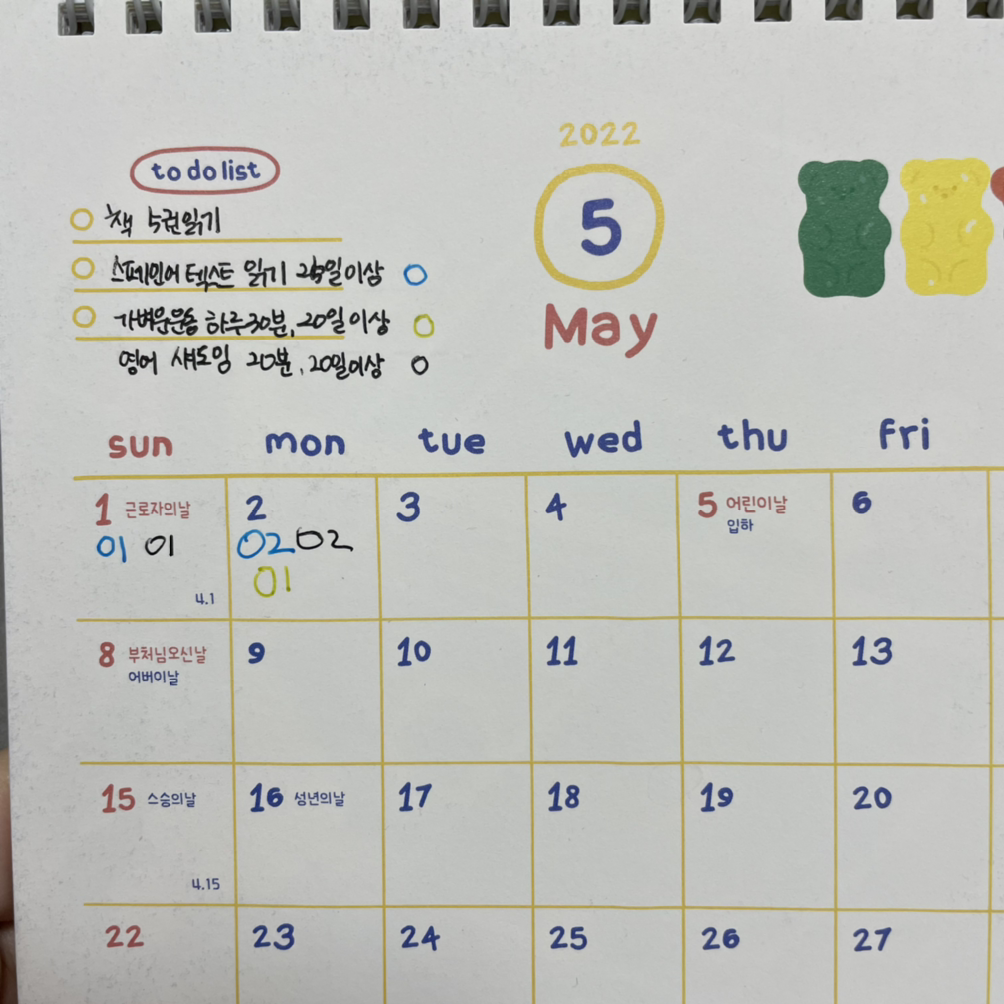 2022
to do list
5
May
책 5권읽기
스페인어 텍스트 읽기 25일이상
가벼운운동 하루30분, 20일이상
영어 섀도잉 20분, 20일이상
sun mon tue wed thu fri
1 근로자의날 2 3 4 5 어린이날 6
입하
01 01 02 02
01
4.1
8 부처님오신날 9 10 11 12 13
어버이날
15 스승의날 16 성년의날 17 18 19 20
4.15
22 23 24 25 26 27